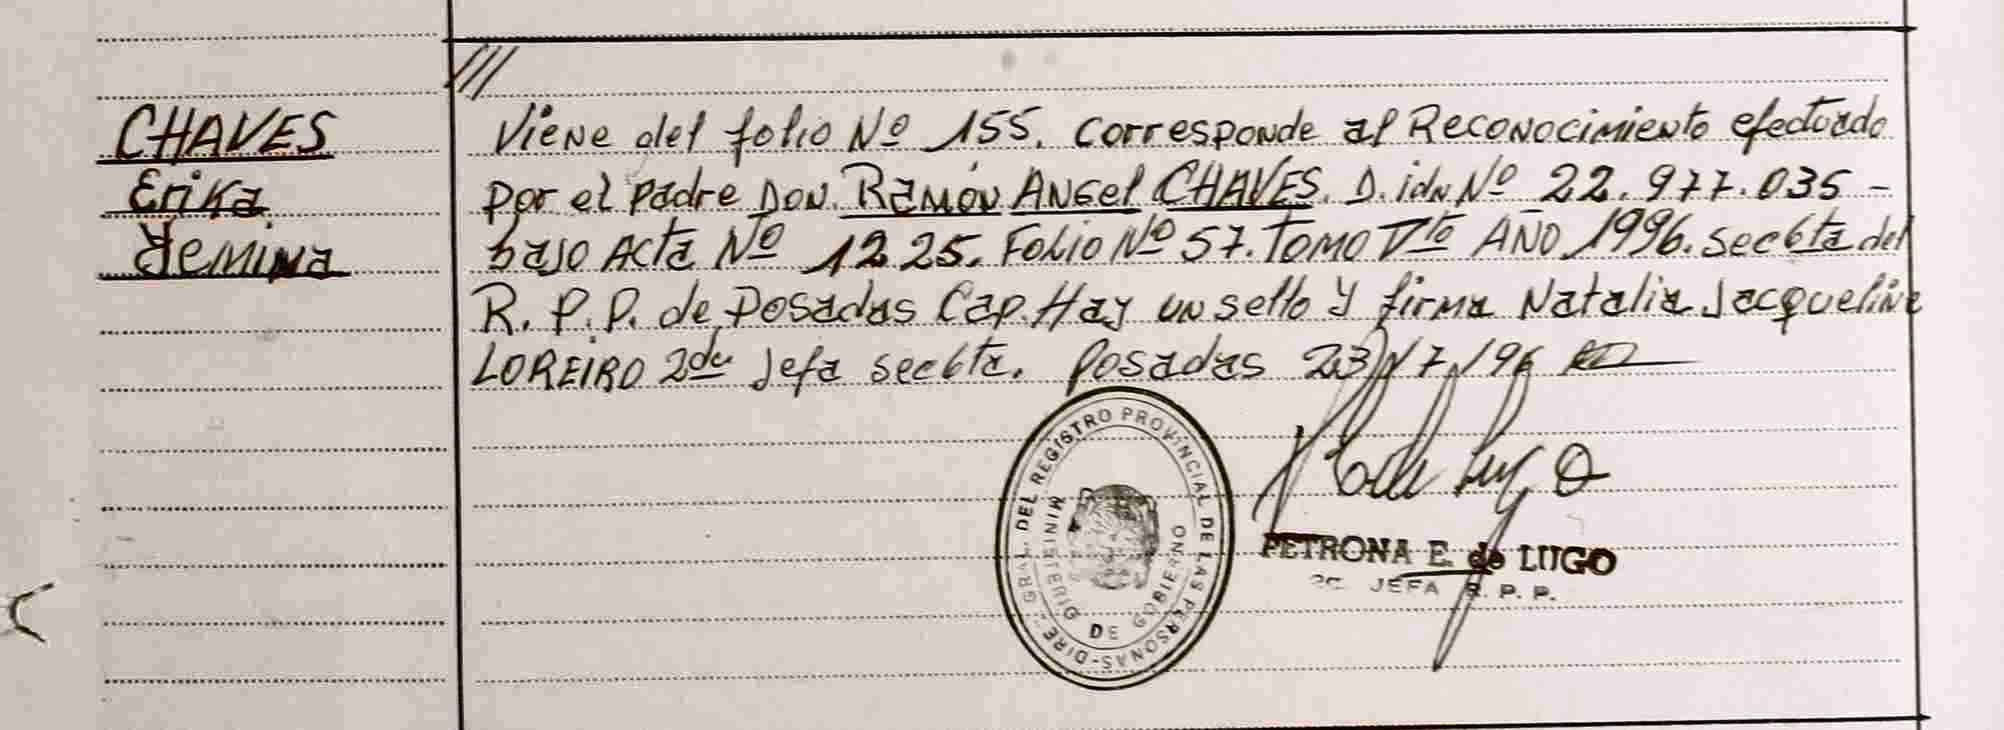 CHAVES
Erika
Yemina
///
Viene del folio Nº 155. Corresponde al Reconocimiento efectuado
por el padre Don. Ramón Angel CHAVES. D. idn Nº 22.977.035 -
bajo Acta Nº 1225. Folio Nº 57. Tomo Vto AÑO 1996. Secc 6ta del
R.P.P. de Posadas Cap. Hay un sello y firma Natalia Jacqueline
LOREIRO 2da Jefa secc 6ta. Posadas 23/7/96
DIRE. GRAL. DEL REGISTRO PROVINCIAL DE LAS PERSONAS-
DE GOBIERNO
PETRONA E. de LUGO
JEFA R. P. P.